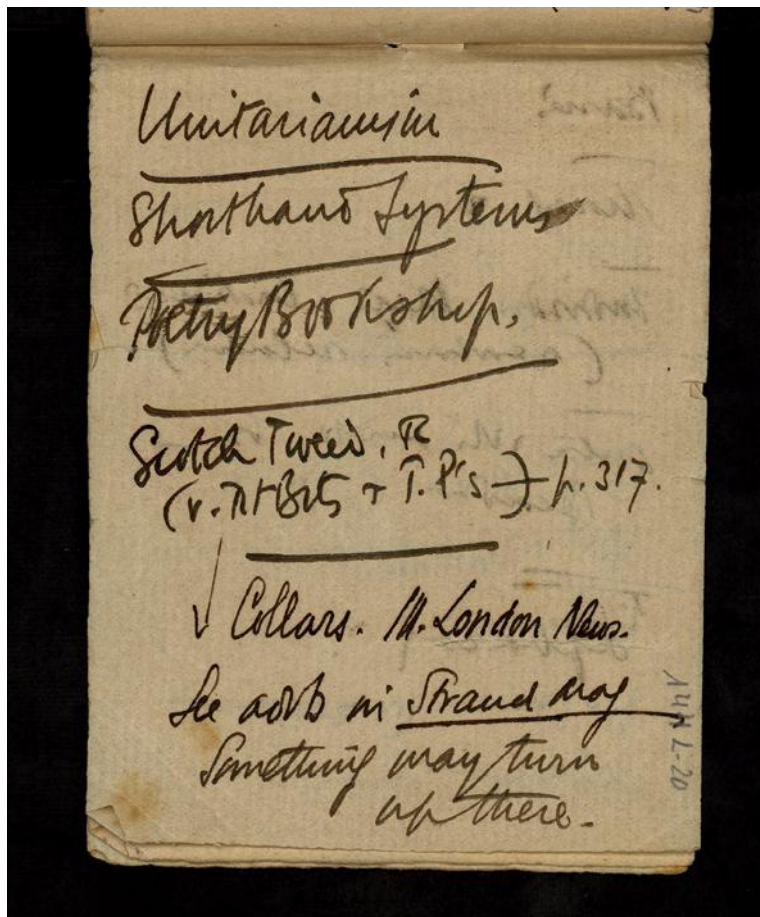 Unitarianism
Shorthand Systems
Poetry Bookshop.
Scotch Tweed,
(v. + T.P's) p. 317.
Collars. Ill. London News.
See advts in Strand Mag
Something may turn
up there.
144 L-20